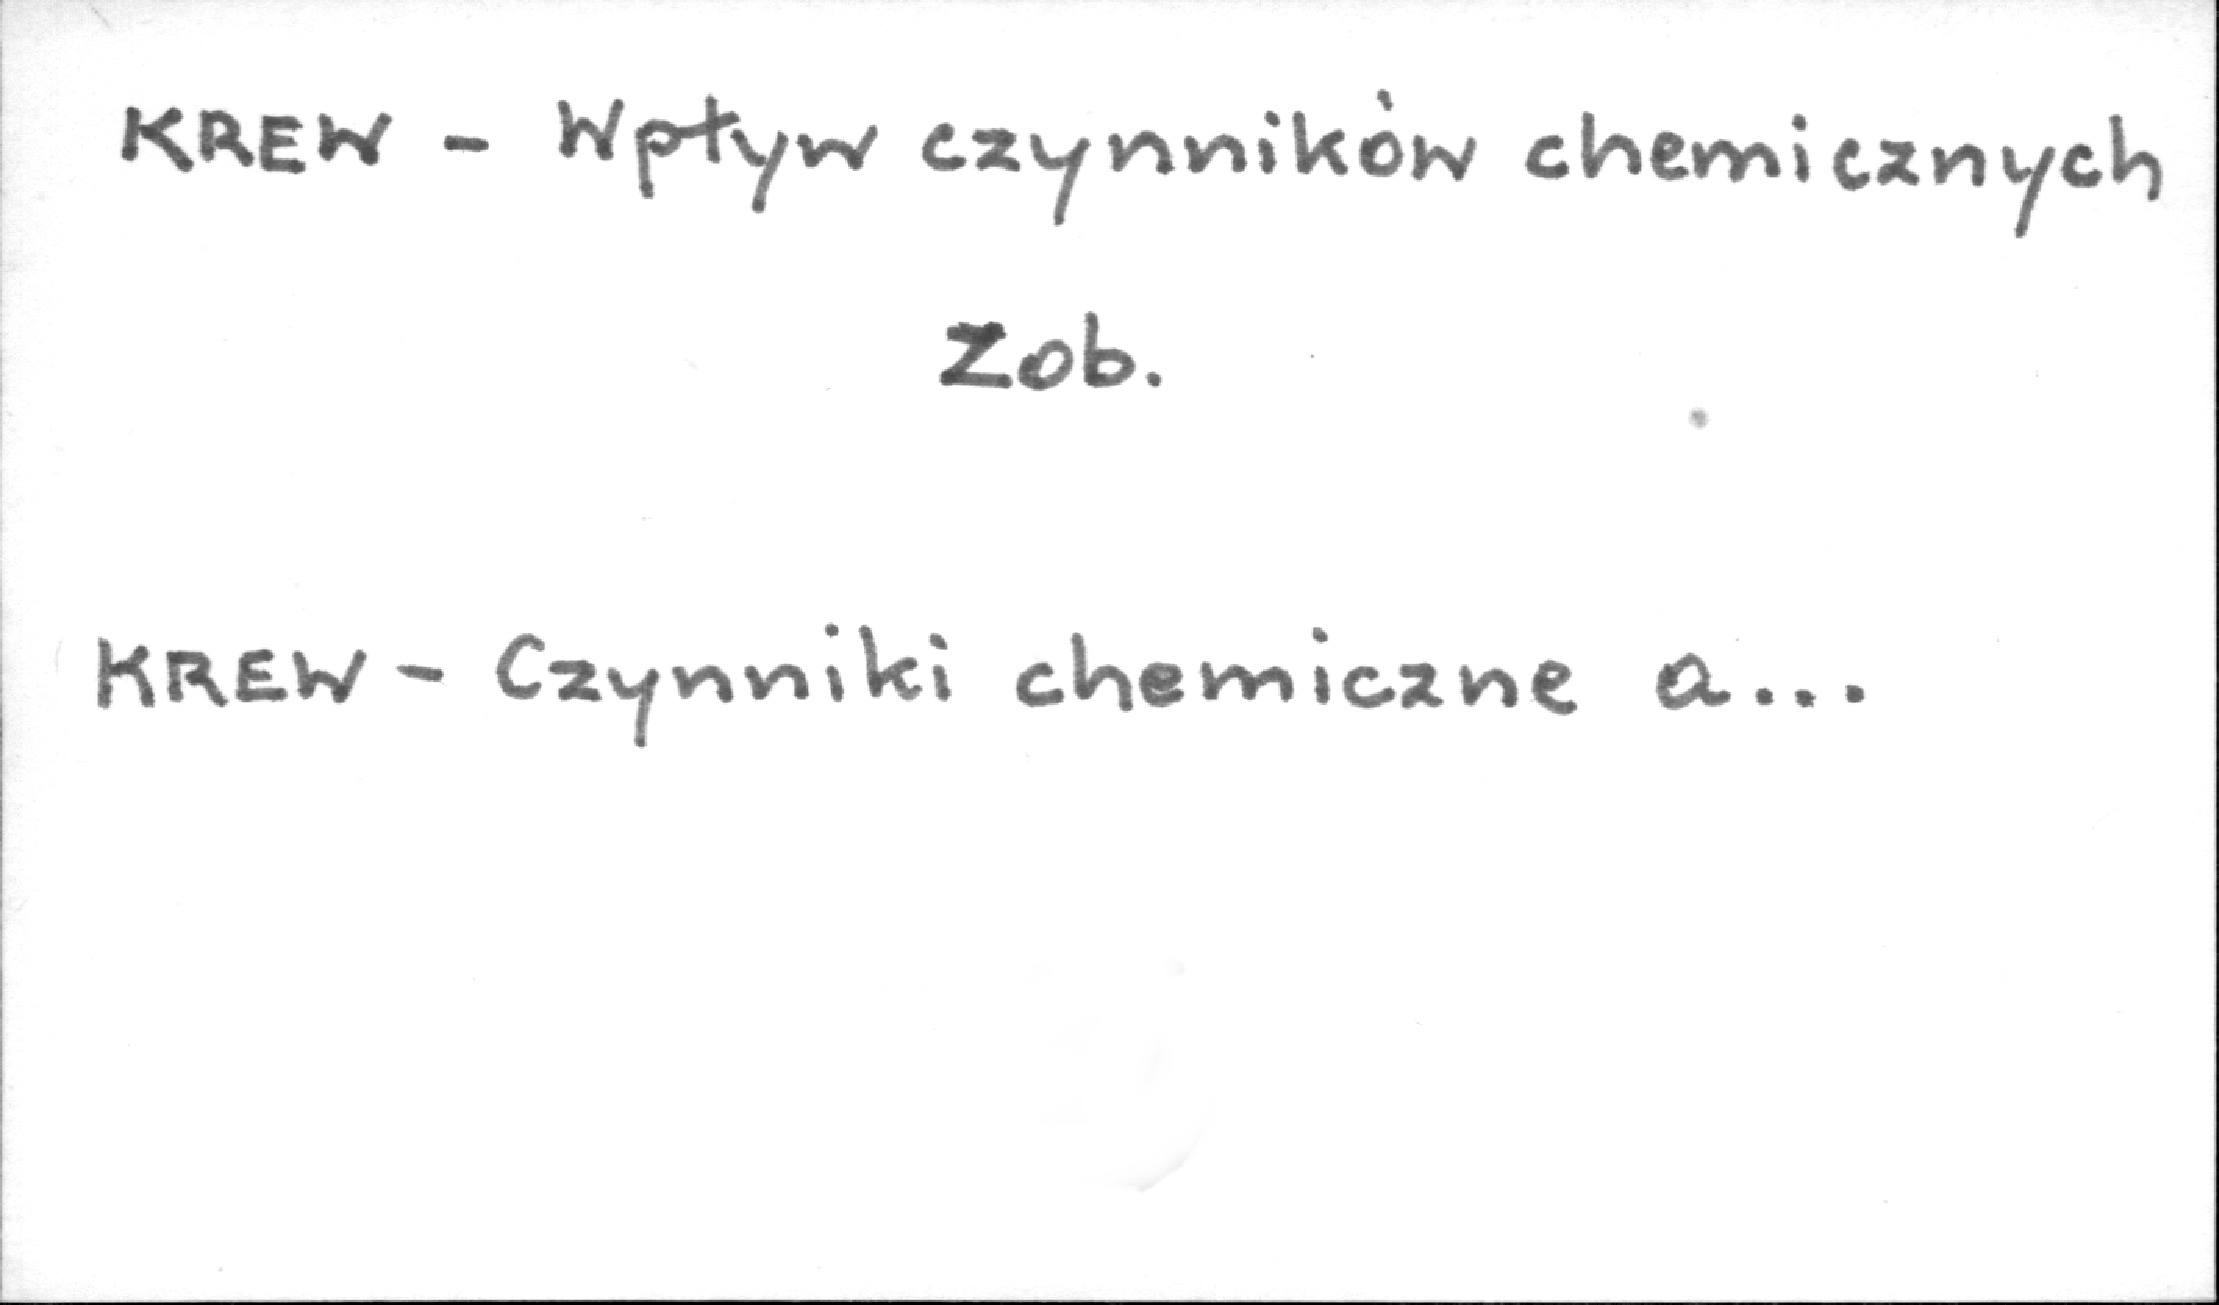 KREW - Wpływ czynników chemicznych
Zob.
KREW - Czynniki chemiczne a...